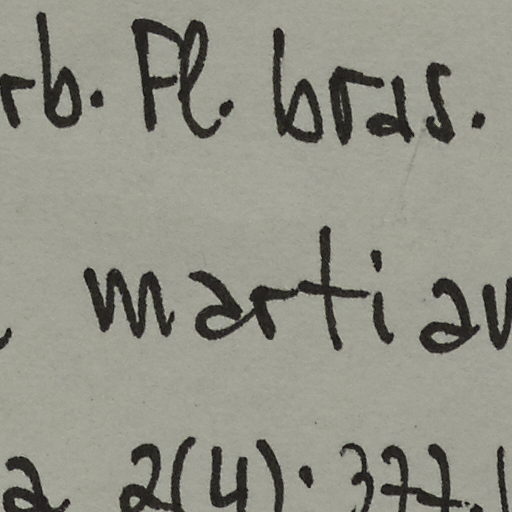 rb. Fl. bras.
martiau
a 2(4): 377.1